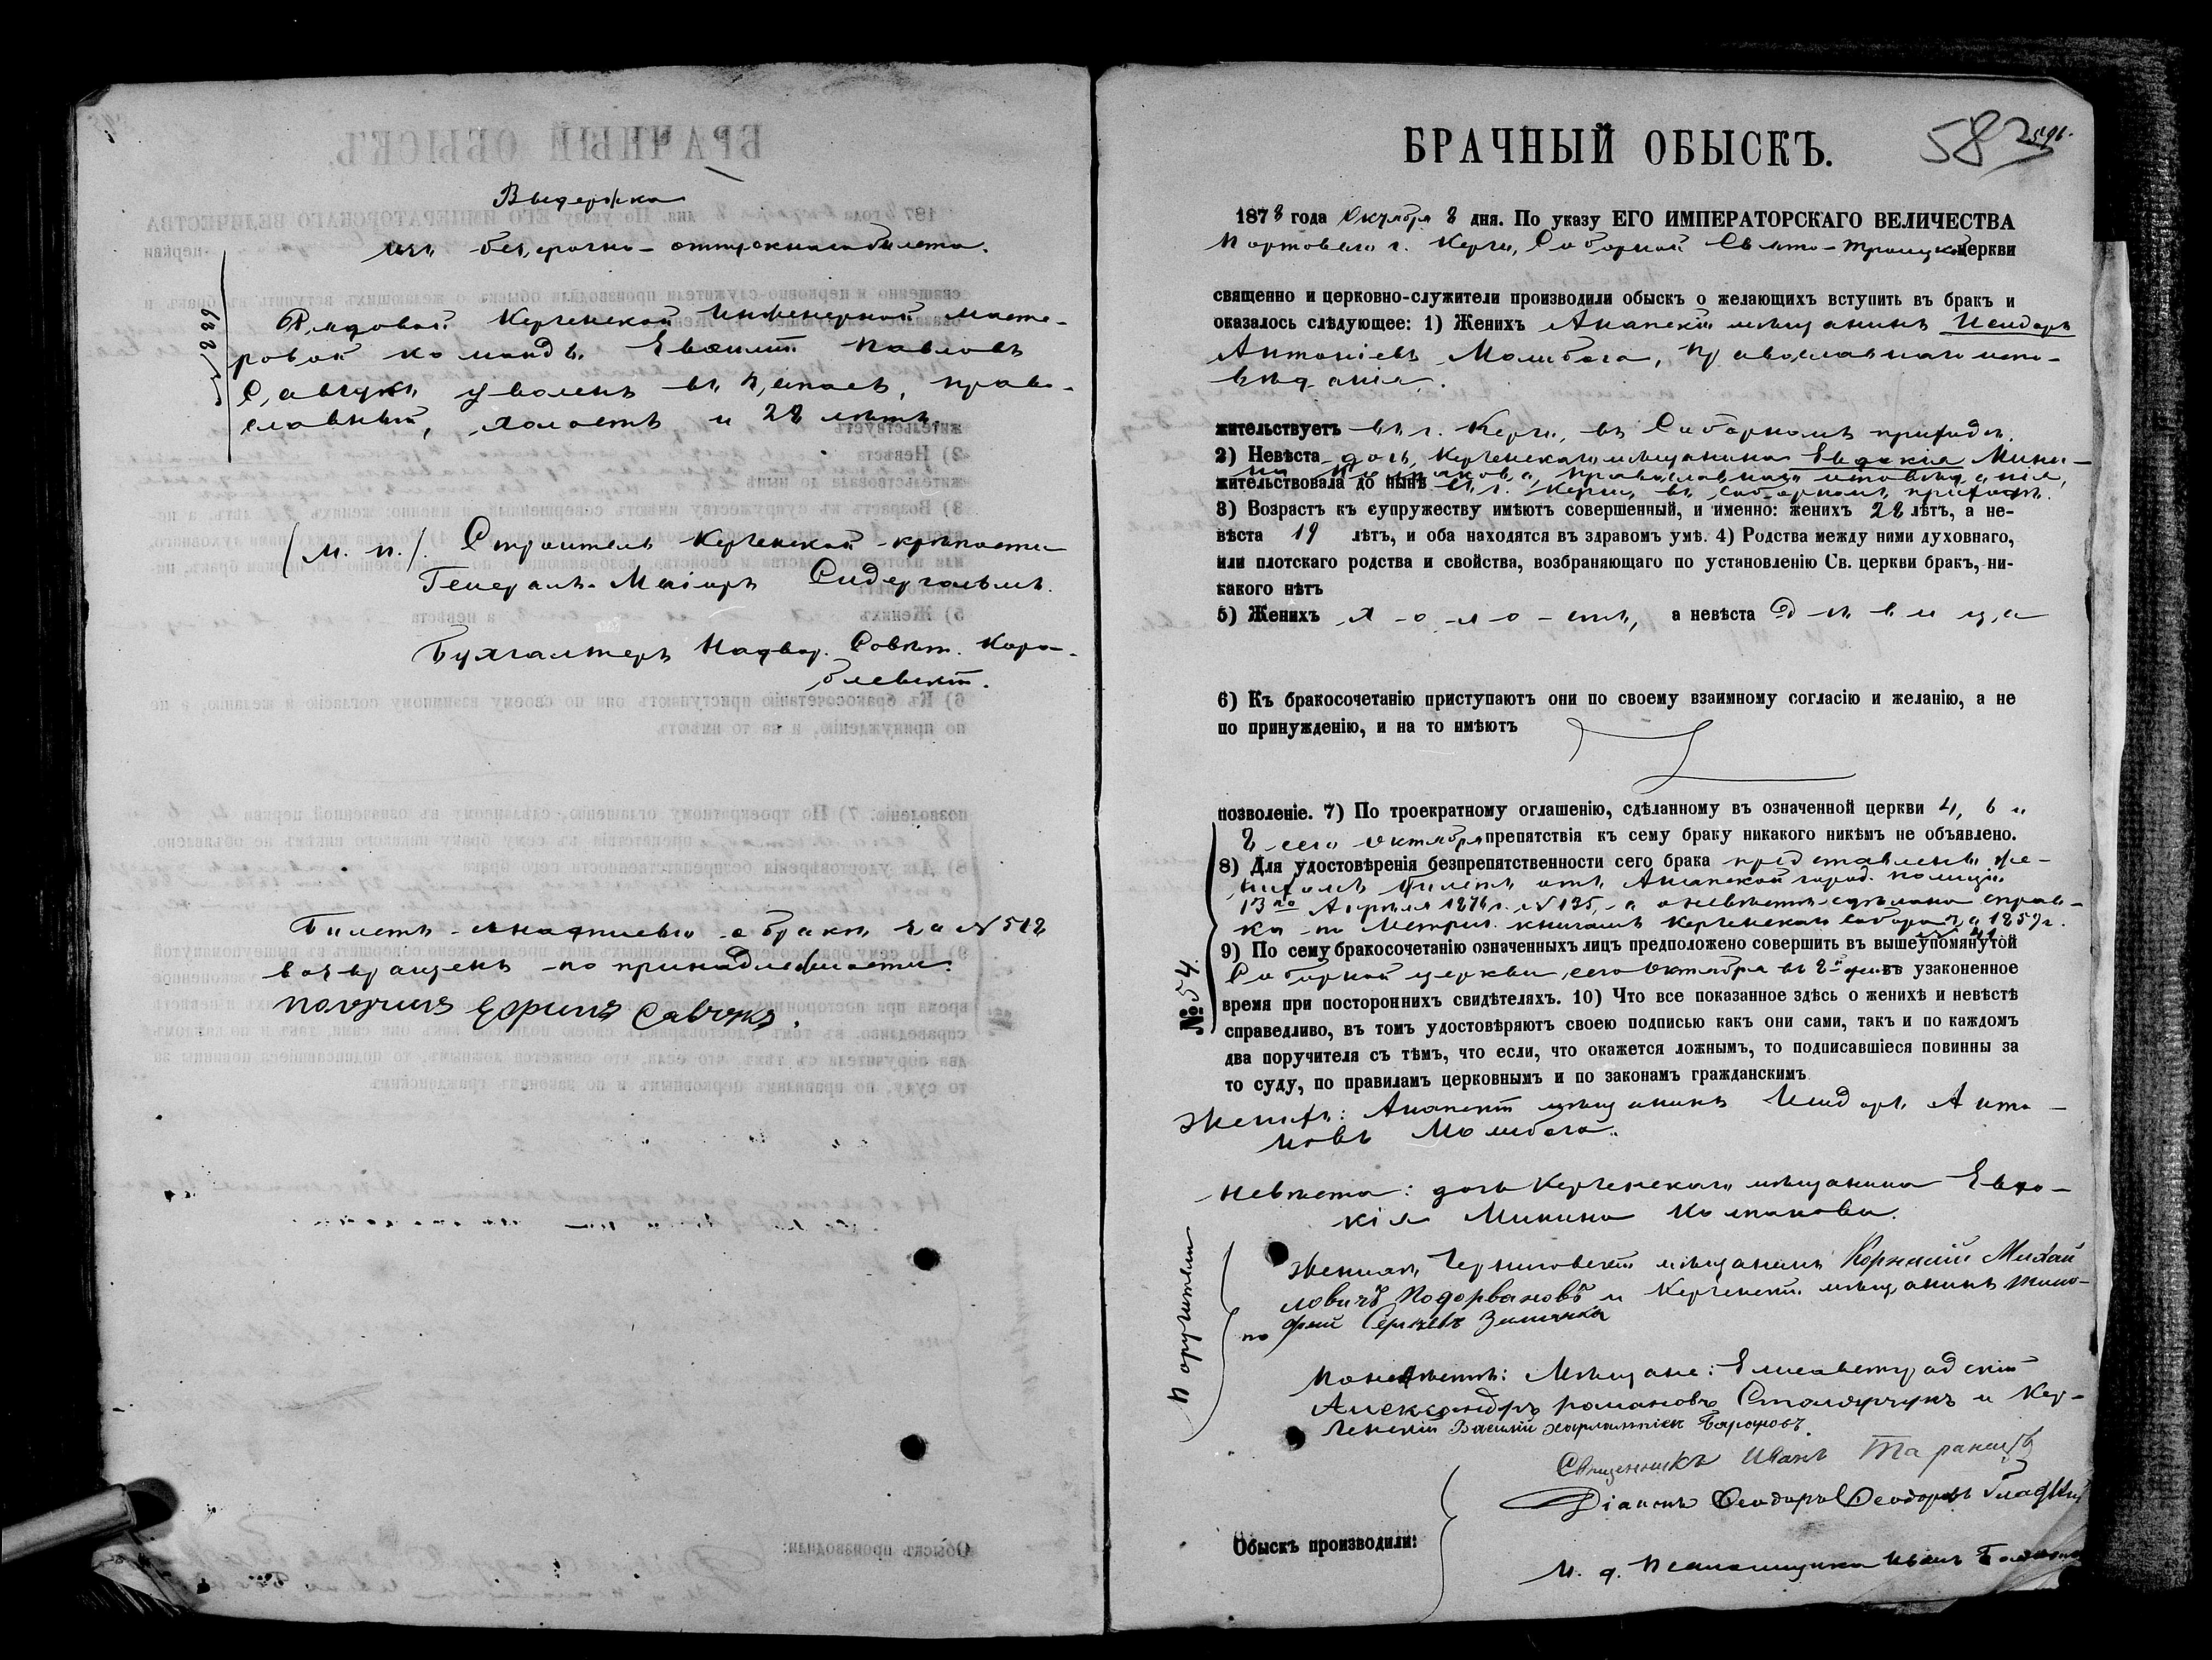 Выдержка
изъ безсрочно-отпускнаго билета.
№ 239
Рядовой Керченской Инженерной масте-
ровой команды Евфимій Павловъ
Савчукъ уволенъ въ запасъ, право-
славный, холостъ и 28 лѣтъ.
(М. П.) Строитель Керченской крѣпости
Генералъ-Маіоръ Сидергольмъ.
Бухгалтеръ Надвор. Совѣт. Кора-
блевскій.
Билетъ съ надписью о бракѣ за № 512
возвращенъ по принадлежности.
получилъ Ефимъ Савчукъ.
БРАЧНЫЙ ОБЫСКЪ.
583
596.
1878 года Октября 8 дня. По указу ЕГО ИМПЕРАТОРСКАГО ВЕЛИЧЕСТВА
Портоваго г. Керчи, Соборной Свято-Троицкой церкви
священно и церковно-служители производили обыскъ о желающихъ вступить въ бракъ и
оказалось слѣдующее: 1) Женихъ Анапскій мѣщанинъ Исидоръ
Антоніевъ Молибога, православнаго испо-
вѣданія.
жительствуетъ въ г. Керчи, въ Соборномъ приходѣ.
2) Невѣста дочь Керченскаго мѣщанина Евдокія Мини-
на Колпакова, православнаго исповѣданія,
жительствовала до нынѣ въ г. Керчи, въ соборномъ приходѣ.
3) Возрастъ къ супружеству имѣютъ совершенный, и именно: женихъ 28 лѣтъ, а не-
вѣста 19 лѣтъ, и оба находятся въ здравомъ умѣ. 4) Родства между ними духовнаго,
или плотскаго родства и свойства, возбраняющаго по установленію Св. церкви бракъ, ни-
какого нѣтъ
5) Женихъ х-о-л-о-стъ, а невѣста дѣвица
6) Къ бракосочетанію приступаютъ они по своему взаимному согласію и желанію, а не
по принужденію, и на то имѣютъ
позволеніе. 7) По троекратному оглашенію, сдѣланному въ означенной церкви 4, 6 и
8 сего октября препятствія къ сему браку никакого никѣмъ не объявлено.
8) Для удостовѣренія безпрепятственности сего брака представленъ же-
нихомъ билетъ отъ Анапской город. полиціи
13го Апрѣля 1878 г. № 195, а о невѣстѣ сдѣлана справ-
ка по Метрич. книгамъ Керченскаго собора за 1859 г.
№ 41.
9) По сему бракосочетанію означенныхъ лицъ предположено совершить въ вышеупомянутой
Соборной церкви, сего Октября въ 8й день въ узаконенное
№ 54.
время при постороннихъ свидѣтеляхъ. 10) Что все показанное здѣсь о женихѣ и невѣстѣ
справедливо, въ томъ удостовѣряютъ своею подписью какъ они сами, такъ и по каждомъ
два поручителя съ тѣмъ, что если, что окажется ложнымъ, то подписавшіеся повинны за
то суду, по правиламъ церковнымъ и по законамъ гражданскимъ
Женихъ: Анапскій мѣщанинъ Исидоръ Анто-
новъ Молибога.
Невѣста: дочь Керченскаго мѣщанина Евдо-
кія Минина Колпакова.
Поручители
по
Женихѣ, Черниговскій мѣщанинъ Корнилій Михай
ловичъ Подорвановъ и Керченскій мѣщанинъ Тимо-
фей Сергѣевъ
По невѣстѣ: Мѣщане: Елисаветградскій
Александръ Романовъ Столярчукъ и Кер-
ченскій Василій Харлампіевъ
Священникъ Иванъ
Діаконъ Ѳеодоръ Ѳеодоровъ
Обыскъ производили:
И. д. Псаломщика Иванъ